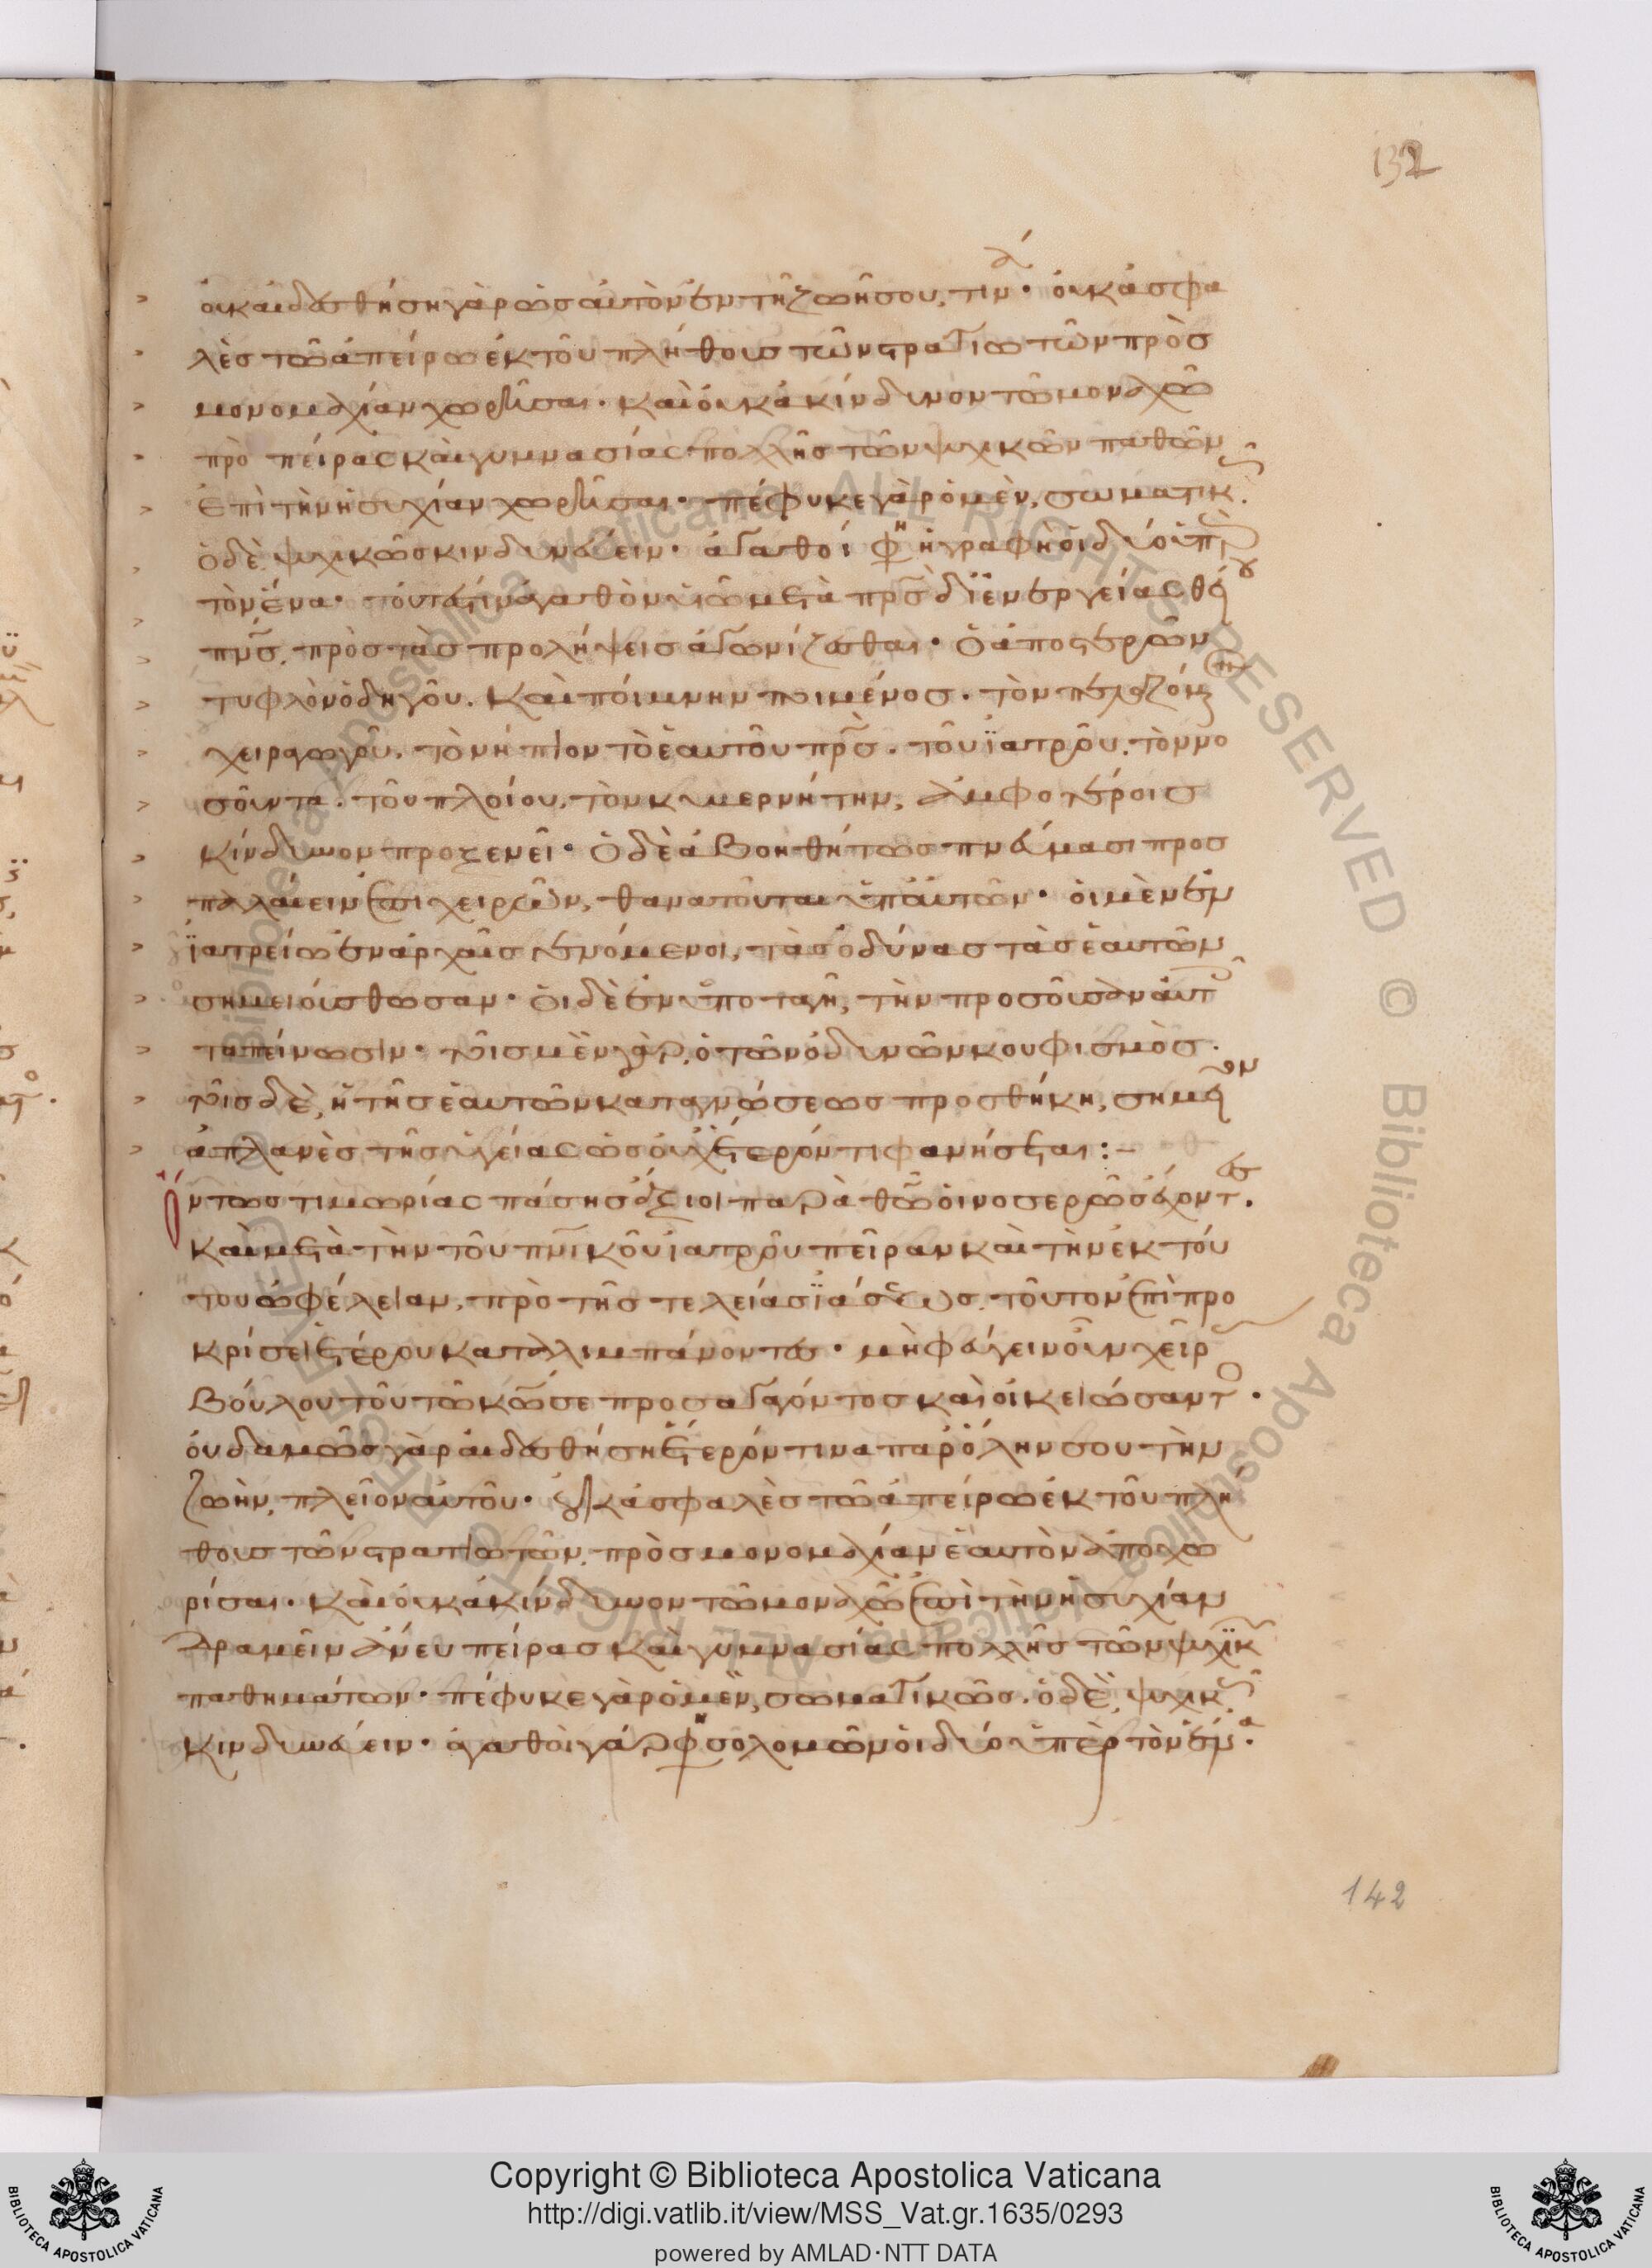 132
οὐκ αἰδεσθήση γὰρ ὡς αὐτὸν ἐν τῆ ζωῆ σου, τινά· οὐκ ἀσφα
λὲς τῶ ἀπείρω ἐκ τοῦ πλήθους τῶν στρατιωτῶν πρὸς
μονομαχίαν χωρίσαι· καὶ οὐκ ἀκίνδυνον τῶ μοναχῶ
πρὸ πείρας καὶ γυμνασίας πολλῆς τῶν ψυχικῶν παθῶν
ἐπὶ τὴν ἡσυχίαν χωρῆσαι· πέφυκε γὰρ ὁ μὲν, σωματικ.
ὁ δὲ ψυχικῶς κινδυνεύειν· ἀγαθοί φη ἡ γραφὴ οἱ δύο ὑπὲρ
τὸν ἕνα· τουτέστιν ἀγαθὸν υἱῶ μετὰ πρς δι ἐνεργείας θείου
πνς, πρὸς τὰς προλήψεις ἀγωνίζεσθαι· ὁ ἀποστερῶν
τυφλὸν ὁδηγοῦ. καὶ ποίμνην ποιμένος. τὸν πελαζόμενον
χειραγωγοῦ. τὸ νήπιον τὸ ἑαυτοῦ πρς. τοῦ ϊατροῦ. τὸν νο
σοῦντα. τοῦ πλοίου, τὸν κυβερνήτην, ἀμφοτέροις
κίνδυνον προξενεῖ· ὁ δὲ ἀβοηθήτως πνεύμασι προσ
παλαίειν ἐπιχειρῶν, θανατοῦται ὑπ' αὐτῶν· οἱ μὲν ἐν
ϊατρείω ἐν ἀρχαῖς γενόμενοι, τὰς ὀδύνας τὰς ἑαυτῶν
σημειούσθωσαν· οἱ δὲ ἐν ὑποταγῆ, τὴν προσοῦσαν αὐτ
ταπείνωσιν· τοῖς μὲν γὰρ, ὁ τῶν ὀδυνῶν κουφισμὸς.
τοῖς δὲ, ἡ τῆς ἑαυτῶν καταγνώσεως προσθήκη, σημεῖον
ἀπλανὲς τῆς ὑγείας ὡς οὐχ ἕτερόν τι φανήσεται:–
ὄντως τιμωρίας πάσης ἄξιοι παρὰ θῶ οἱ νοσερῶς ἔχοντες.
καὶ μετὰ τὴν τοῦ πνικοῦ ἰατροῦ πεῖραν καὶ τὴν ἐκ τού
του ὠφέλειαν, πρὸ τῆς τελείας ϊάσεως. τοῦτον ἐπὶ προ
κρίσει ἑτέρου καταλιμπάνοντες· μὴ φεύγειν οὖν χεῖρ
βούλου τοῦ τῶ κῶ σε προσαγαγόντος καὶ οἰκειώσαντο.
οὐδαμῶς γὰρ αἰδεσθήση ἕτερόν τινα παρ' ὅλην σου τὴν
ζωὴν, πλεῖον αὐτοῦ· οὐκ ἀσφαλὲς τῶ ἀπείρω ἐκ τοῦ πλή
θους τῶν στρατιωτῶν, πρὸς μονομαχίαν ἑαυτὸν ἀποχω
ρίσαι· καὶ οὐκ ἀκίνδυνον τῶ μοναχῶ ἐπὶ τὴν ἡσυχίαν
δραμεῖν ἄνευ πείρας καὶ γυμνασίας πολλῆς τῶν ψυχικ
παθημάτων· πέφυκε γὰρ ὁ μὲν, σωματικῶς. ὁ δὲ, ψυχικ
κινδυνεύειν· ἀγαθοὶ γάρ φη σολομῶν οἱ δύο ὑπὲρ τὸν ἕνα.
142
Copyright © Biblioteca Apostolica Vaticana
http://digi.vatlib.it/view/MSS_Vat.gr.1635/0293
powered by AMLAD·NTT DATA